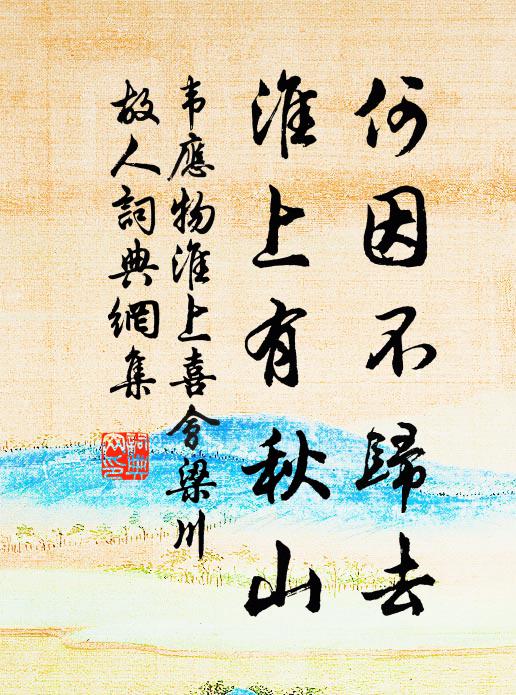 何因不歸去
淮上有秋山
韦應物淮上喜會梁川
故人詞典網集